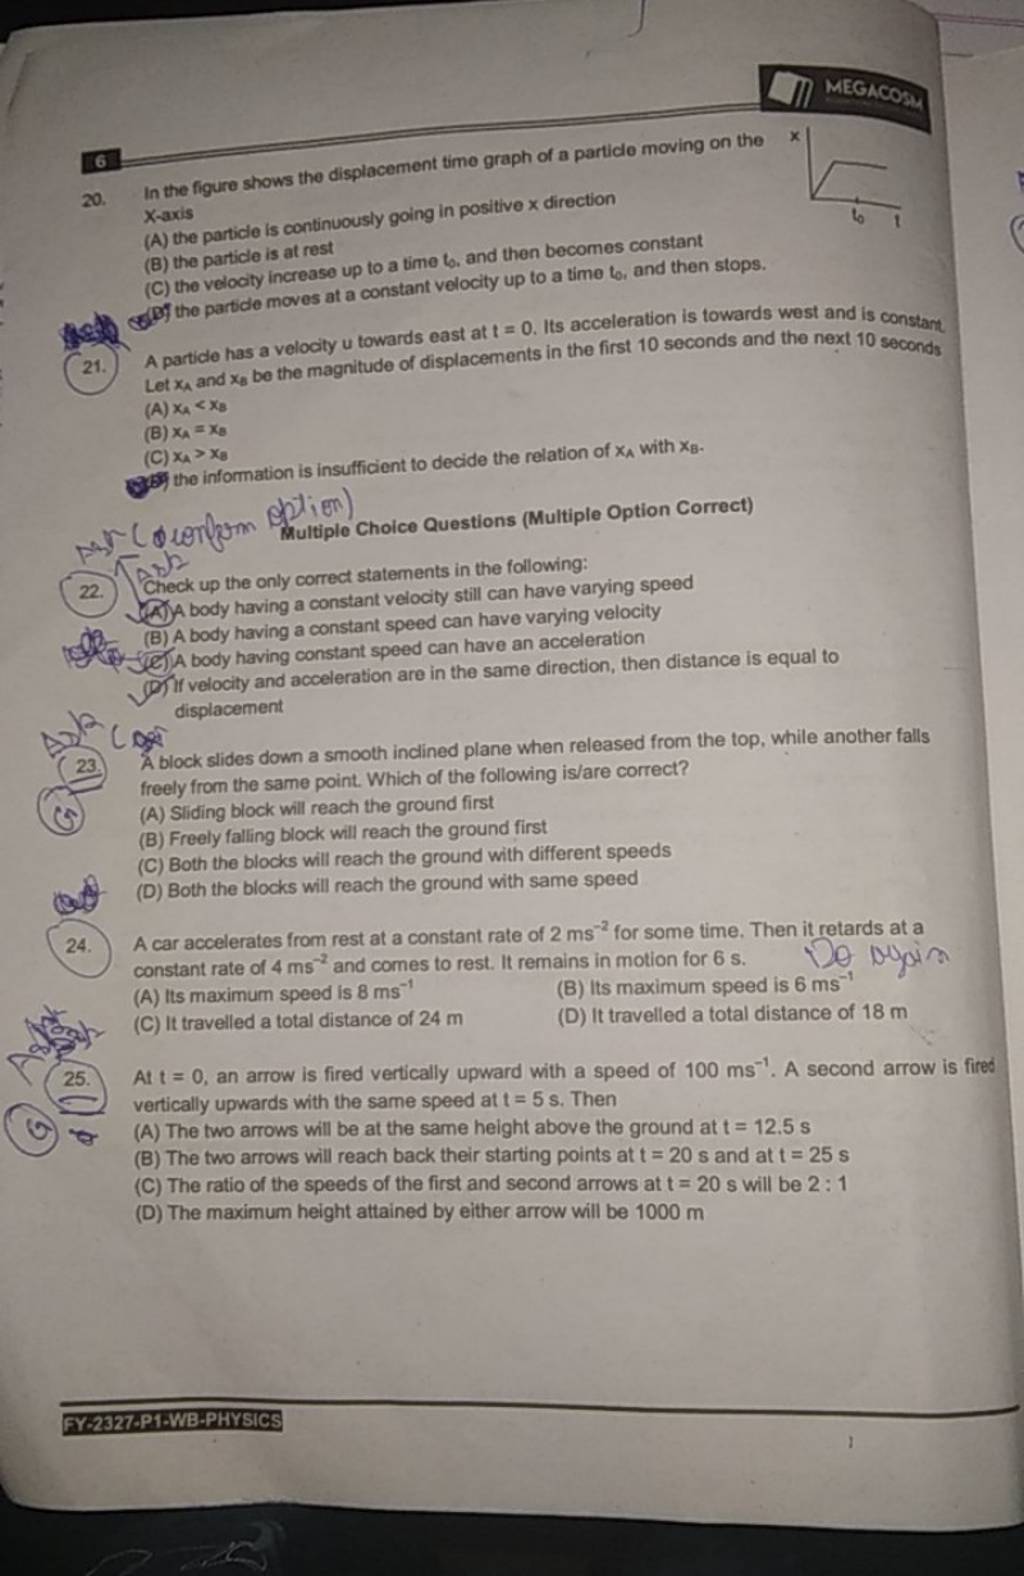 MEGACOSM
6
20. In the figure shows the displacement time graph of a particle moving on the
X-axis
(A) the particle is continuously going in positive x direction
(B) the particle is at rest
(C) the velocity increase up to a time t₀, and then becomes constant
(D) the particle moves at a constant velocity up to a time t₀, and then stops.
x
t₀ t
21. A particle has a velocity u towards east at t = 0. Its acceleration is towards west and is constant.
Let xA and xB be the magnitude of displacements in the first 10 seconds and the next 10 seconds
(A) xA < xB
(B) xA = xB
(C) xA > xB
(D) the information is insufficient to decide the relation of xA with xB.
option)
Multiple Choice Questions (Multiple Option Correct)
Ask
22. Check up the only correct statements in the following:
(A) A body having a constant velocity still can have varying speed
(B) A body having a constant speed can have varying velocity
(C) A body having constant speed can have an acceleration
(D) If velocity and acceleration are in the same direction, then distance is equal to
displacement
Ask
23. A block slides down a smooth inclined plane when released from the top, while another falls
freely from the same point. Which of the following is/are correct?
(A) Sliding block will reach the ground first
(B) Freely falling block will reach the ground first
(C) Both the blocks will reach the ground with different speeds
(D) Both the blocks will reach the ground with same speed
24. A car accelerates from rest at a constant rate of 2 ms⁻² for some time. Then it retards at a
constant rate of 4 ms⁻² and comes to rest. It remains in motion for 6 s.
Do again
(A) Its maximum speed is 8 ms⁻¹ (B) Its maximum speed is 6 ms⁻¹
(C) It travelled a total distance of 24 m (D) It travelled a total distance of 18 m
25. At t = 0, an arrow is fired vertically upward with a speed of 100 ms⁻¹. A second arrow is fired
vertically upwards with the same speed at t = 5 s. Then
(A) The two arrows will be at the same height above the ground at t = 12.5 s
(B) The two arrows will reach back their starting points at t = 20 s and at t = 25 s
(C) The ratio of the speeds of the first and second arrows at t = 20 s will be 2 : 1
(D) The maximum height attained by either arrow will be 1000 m
FY-2327-P1-WB-PHYSICS